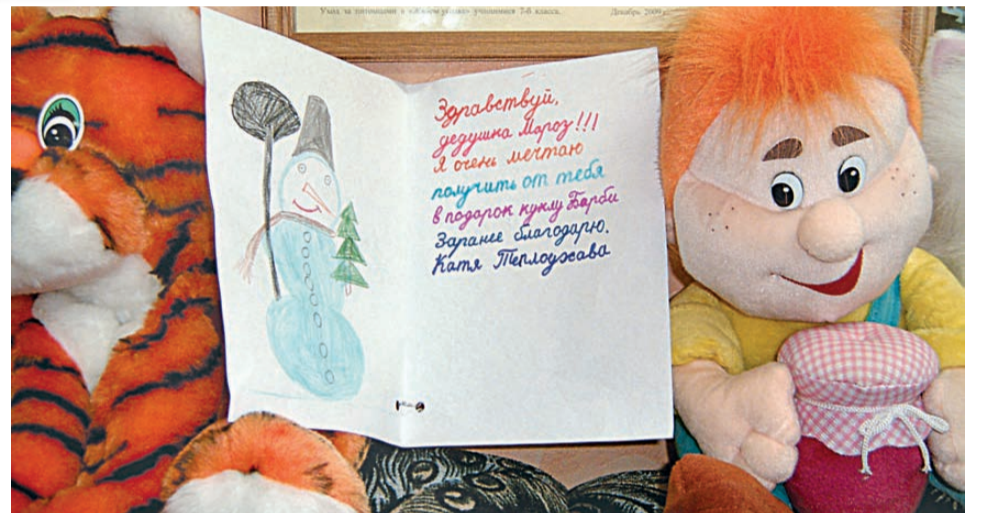 Уход за питомцами в «Живом уголке» учащимися 7-б класса. Декабрь 2009 г.
Здравствуй,
дедушка Мороз!!!
Я очень мечтаю
получить от тебя
в подарок куклу Барби
Заранее благодарю.
Катя Теплоухова